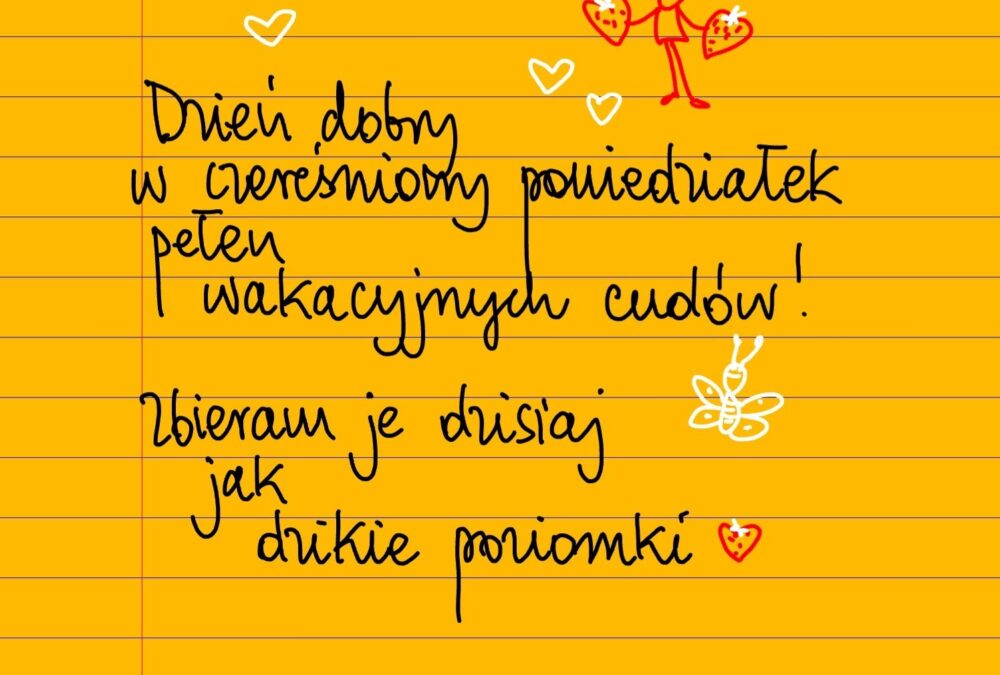 Dzień dobry
w czereśniowy poniedziałek
pełen
wakacyjnych cudów!
Zbieram je dzisiaj
jak
dzikie poziomki